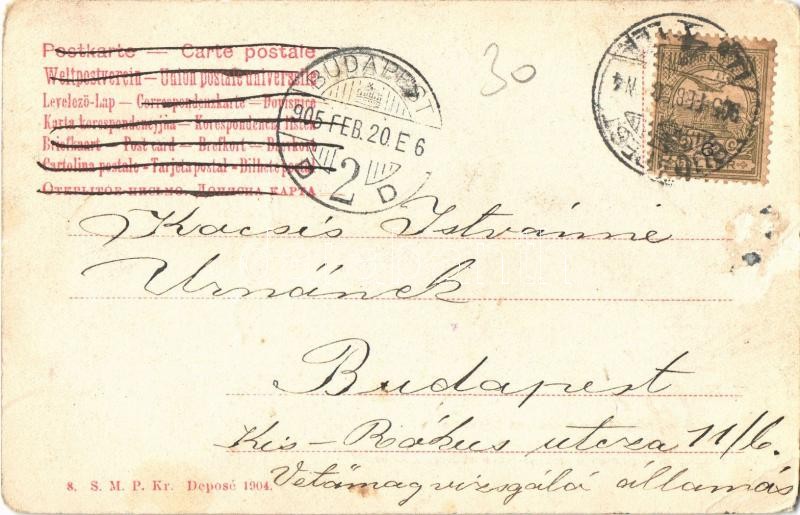 Postkarte — Carte postale
Weltpostverein — Union postale universelle
Levelező-Lap — Correspondenzkarte — Dopisnice
Karta korespondencyjna — Korespondenční lístek
Briefkaart — Post card — Brefkort — Brevkort
Cartolina postale — Tarjeta postal — Bilhete postal
Открытое письмо. Дописна карта
BUDAPEST
905 FEB. 20. E 6
2
D D
30
Kocsis Istvánné
Urnának
Budapest
Kis-Rókus utcza 11/b.
Vetőmagvizsgáló állomás
8. S. M. P. Kr. Deposé 1904.